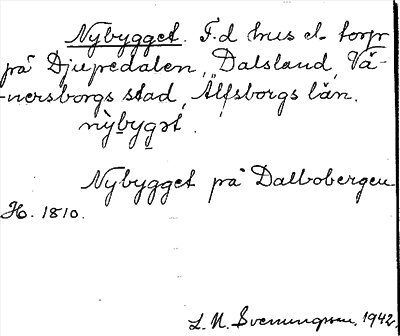 Nybygget. F.d hus el. torp
på Djupedalen, Dalsland, Vä-
nersborgs stad, Älfsborgs län.
nỳbygət.
Nybygget på Dalbobergen
Hb. 1810.
L. N. Svenungsson, 1942.